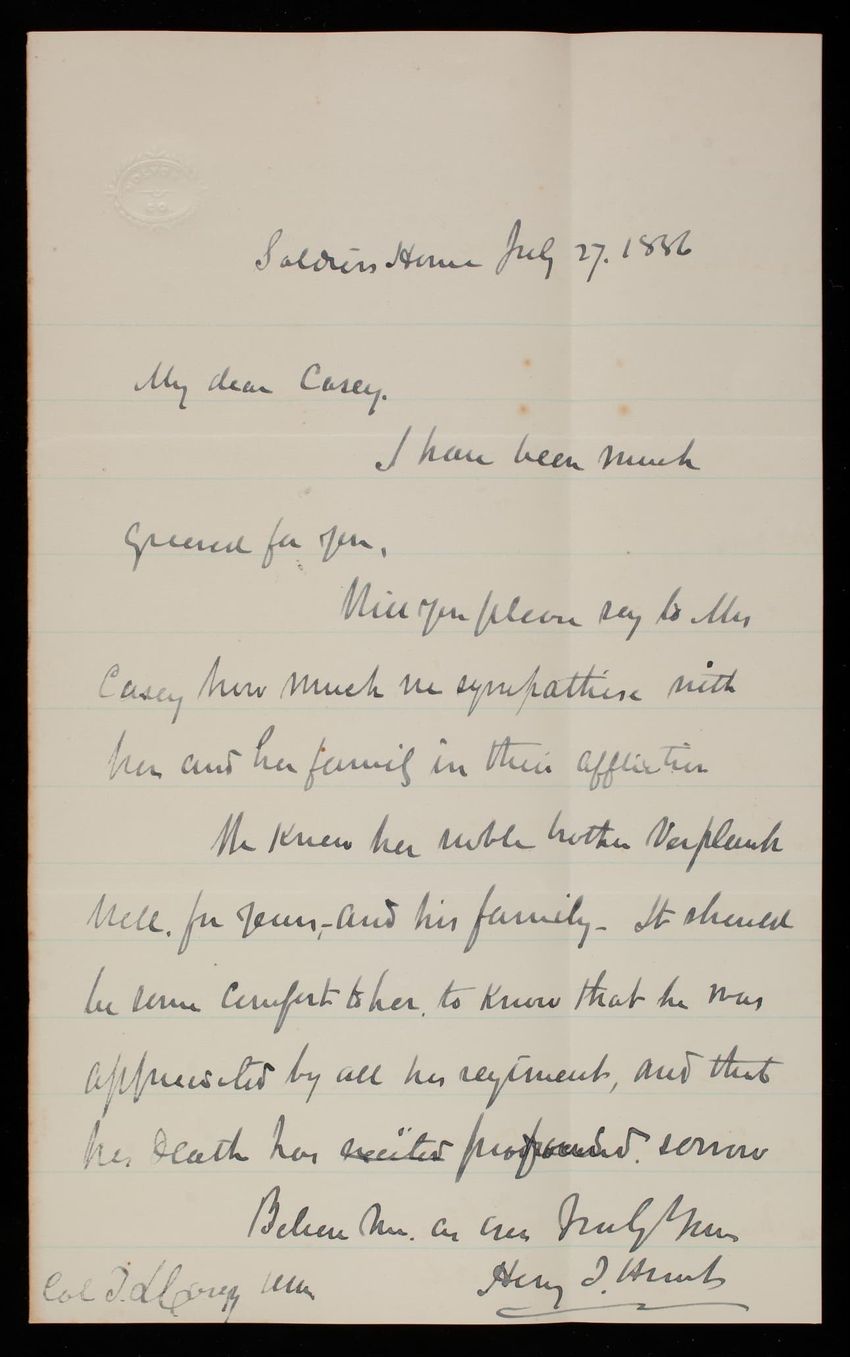 Soldiers Home July 27. 1886
My dear Casey.
I have been much
grieved for you.
Will you please say to Mrs
Casey how much we sympathise with
her and her family in their affliction
We knew her noble brother Verplanck
Well. for years,- and his family - It should
be some comfort to her. to know that he was
appreciated by all his regiment, and that
his death has excited profound. sorrow
Believe me. as ever Truly Yours
Henry J. Hunt
Col T. L. Casey